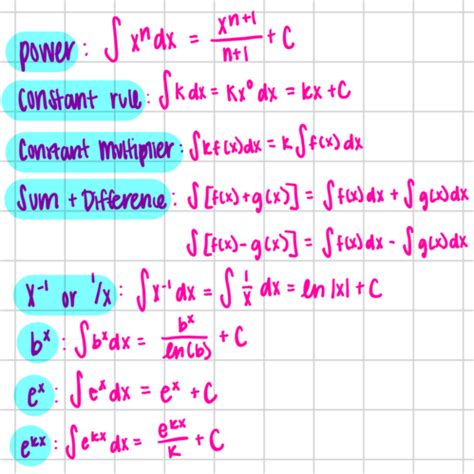 power: ∫ xⁿ dx = xⁿ⁺¹/n+1 + C
Constant rule: ∫ k dx = Kx⁰ dx = kx + C
Constant Multiplier: ∫ kf(x)dx = k ∫ f(x) dx
Sum + Difference: ∫ [f(x)+g(x)] = ∫ f(x) dx + ∫ g(x) dx
∫ [f(x)-g(x)] = ∫ f(x) dx - ∫ g(x) dx
x⁻¹ or 1/x: ∫ x⁻¹ dx = ∫ 1/x dx = ln |x| + C
bˣ: ∫ bˣ dx = bˣ/ln(b) + C
eˣ: ∫ eˣ dx = eˣ + C
eᵏˣ: ∫ eᵏˣ dx = eᵏˣ/K + C